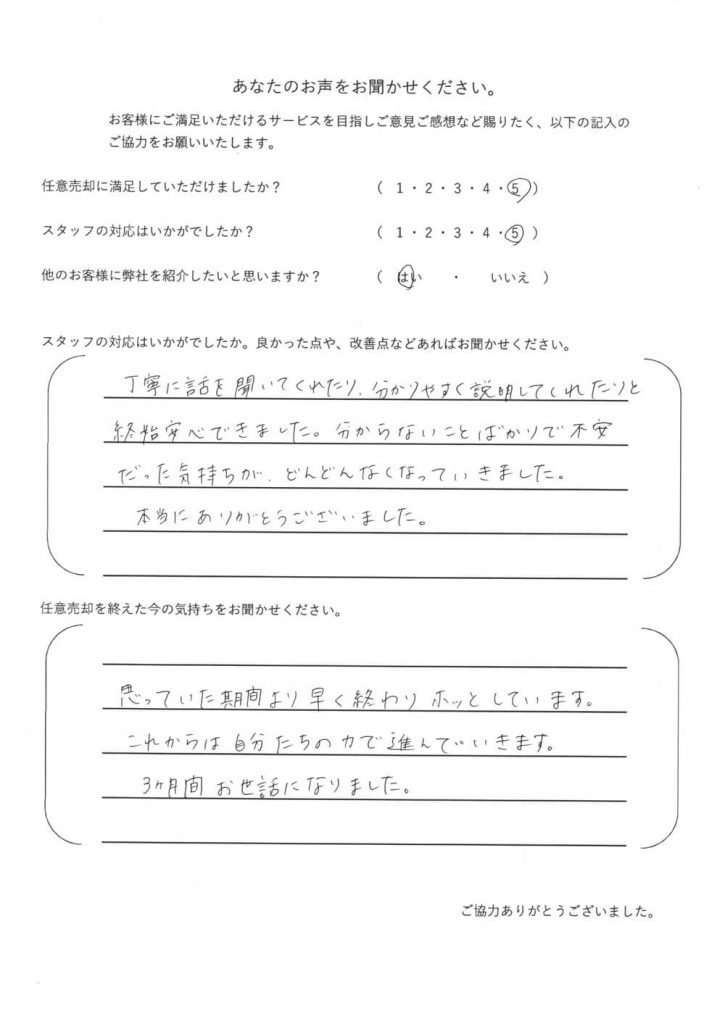 あなたのお声をお聞かせください。
お客様にご満足いただけるサービスを目指しご意見ご感想など賜りたく、以下の記入の
ご協力をお願いいたします。
任意売却に満足していただけましたか？ （ 1・2・3・4・5 ）
スタッフの対応はいかがでしたか？ （ 1・2・3・4・5 ）
他のお客様に弊社を紹介したいと思いますか？ （ はい ・ いいえ ）
スタッフの対応はいかがでしたか。良かった点や、改善点などあればお聞かせください。
丁寧に話を聞いてくれたり、分かりやすく説明してくれたりと
終始安心できました。分からないことばかりで不安
だった気持ちが、どんどんなくなっていきました。
本当にありがとうございました。
任意売却を終えた今の気持ちをお聞かせください。
思っていた期間より早く終わりホッとしています。
これからは自分たちの力で進んでいきます。
3ヶ月間お世話になりました。
ご協力ありがとうございました。